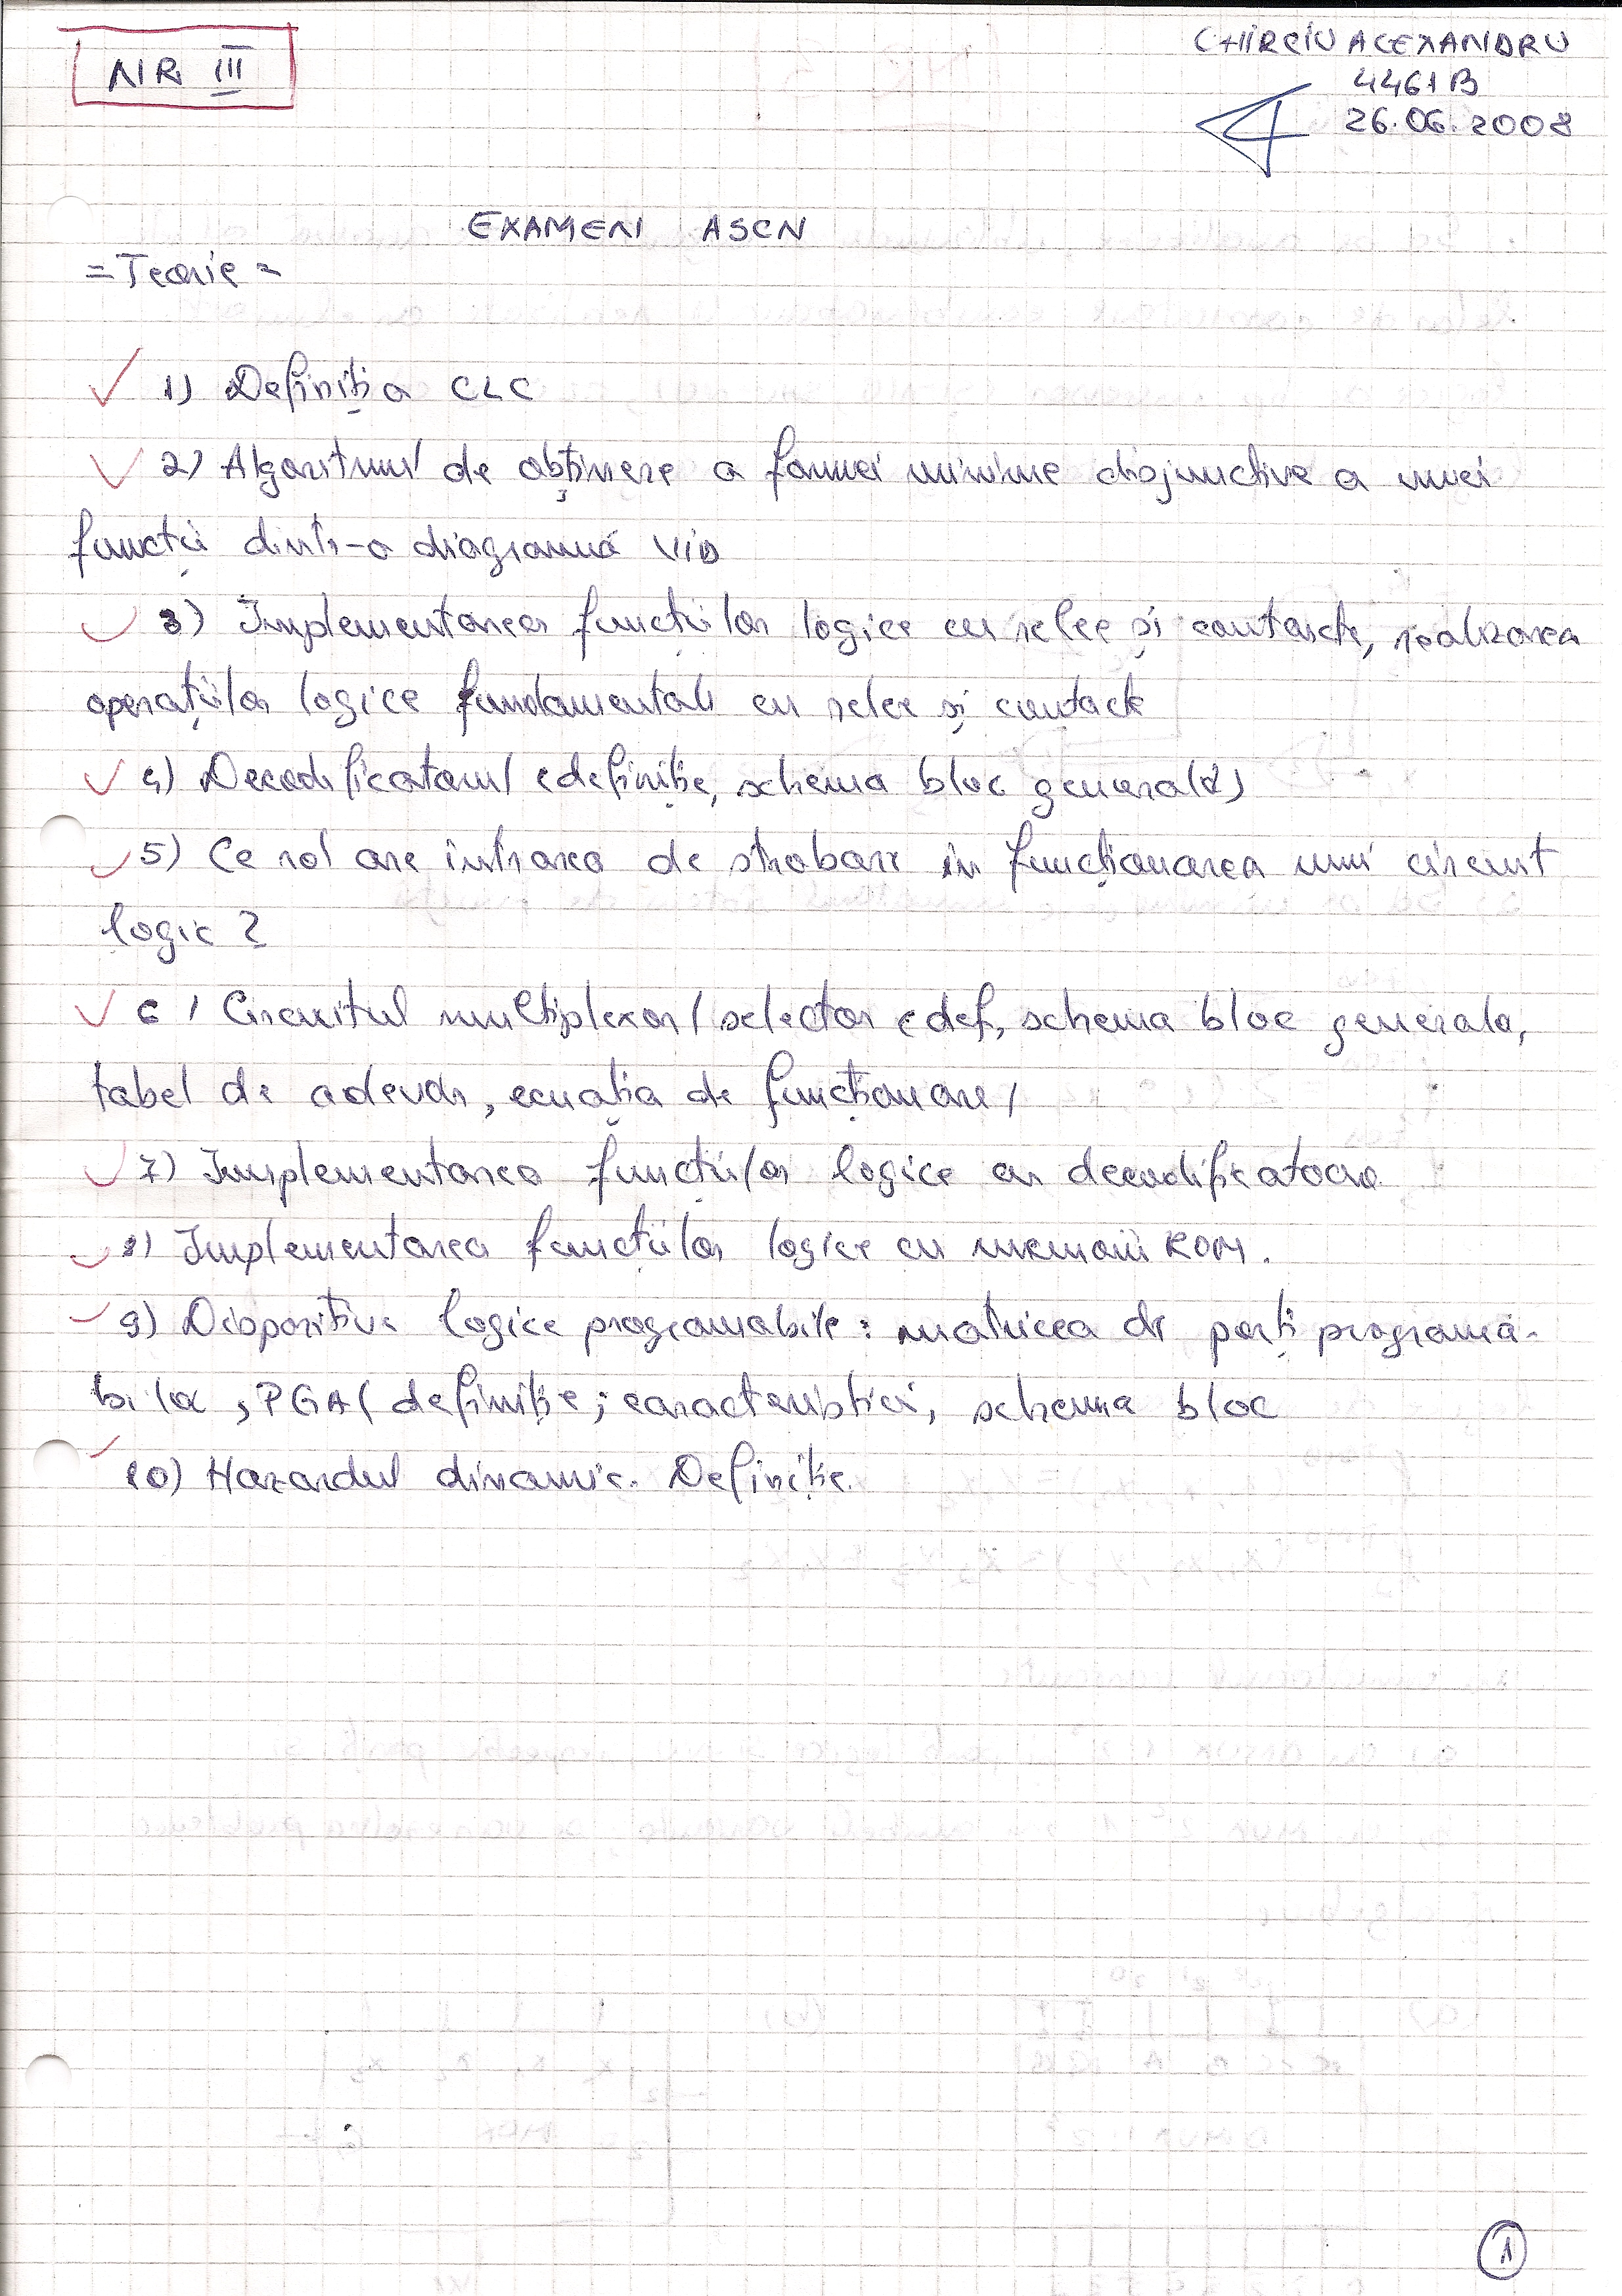 NR III
CHIRCIU ALEXANDRU
4461B
26.06.2008
EXAMEN ASCN
=Teorie=
1) Definiția CLC
2) Algoritmul de obținere a formei minime disjunctive a unei
funcții dintr-o diagramă VID
3) Implementarea funcțiilor logice cu relee și contacte, realizarea
operațiilor logice fundamentale cu relee și contacte
4) Decodificatorul (definiție, schema bloc generală)
5) Ce rol are intrarea de strobare în funcționarea unui circuit
logic ?
6) Circuitul multiplexor/selector (def, schema bloc generala,
tabel de adevăr, ecuația de funcționare)
7) Implementarea funcțiilor logice cu decodificatoare
8) Implementarea funcțiilor logice cu memorii ROM.
9) Dispozitive logice programabile: matricea de porți programa-
bila, PGA (definiție; caracteristici, schema bloc
10) Hazardul dinamic. Definiție.
1